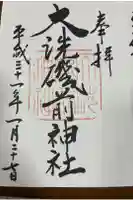 奉拝
大洗磯前神社
平成三十一年一月二十七日